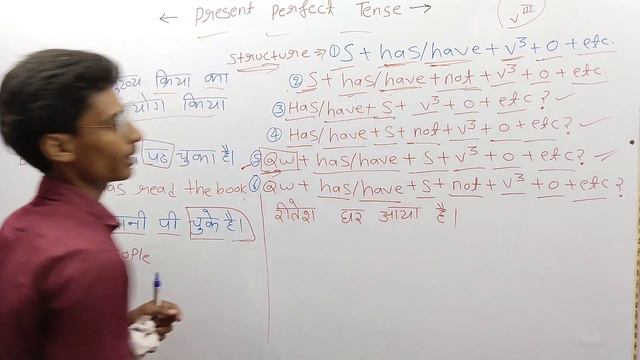 ← Present Perfect Tense →
V III
structure → ① S + has/have + v³ + O + etc.
② S + has/have + not + v³ + O + etc.
③ Has/have + S + v³ + O + etc?
④ Has/have + S + not + v³ + O + etc?
⑤ Qw + has/have + S + v³ + O + etc?
⑥ Qw + has/have + S + not + v³ + O + etc?
क्रिया का
किया
पढ़ चुका है।
read the book
पी चुके है।
रीतेश घर आया है।